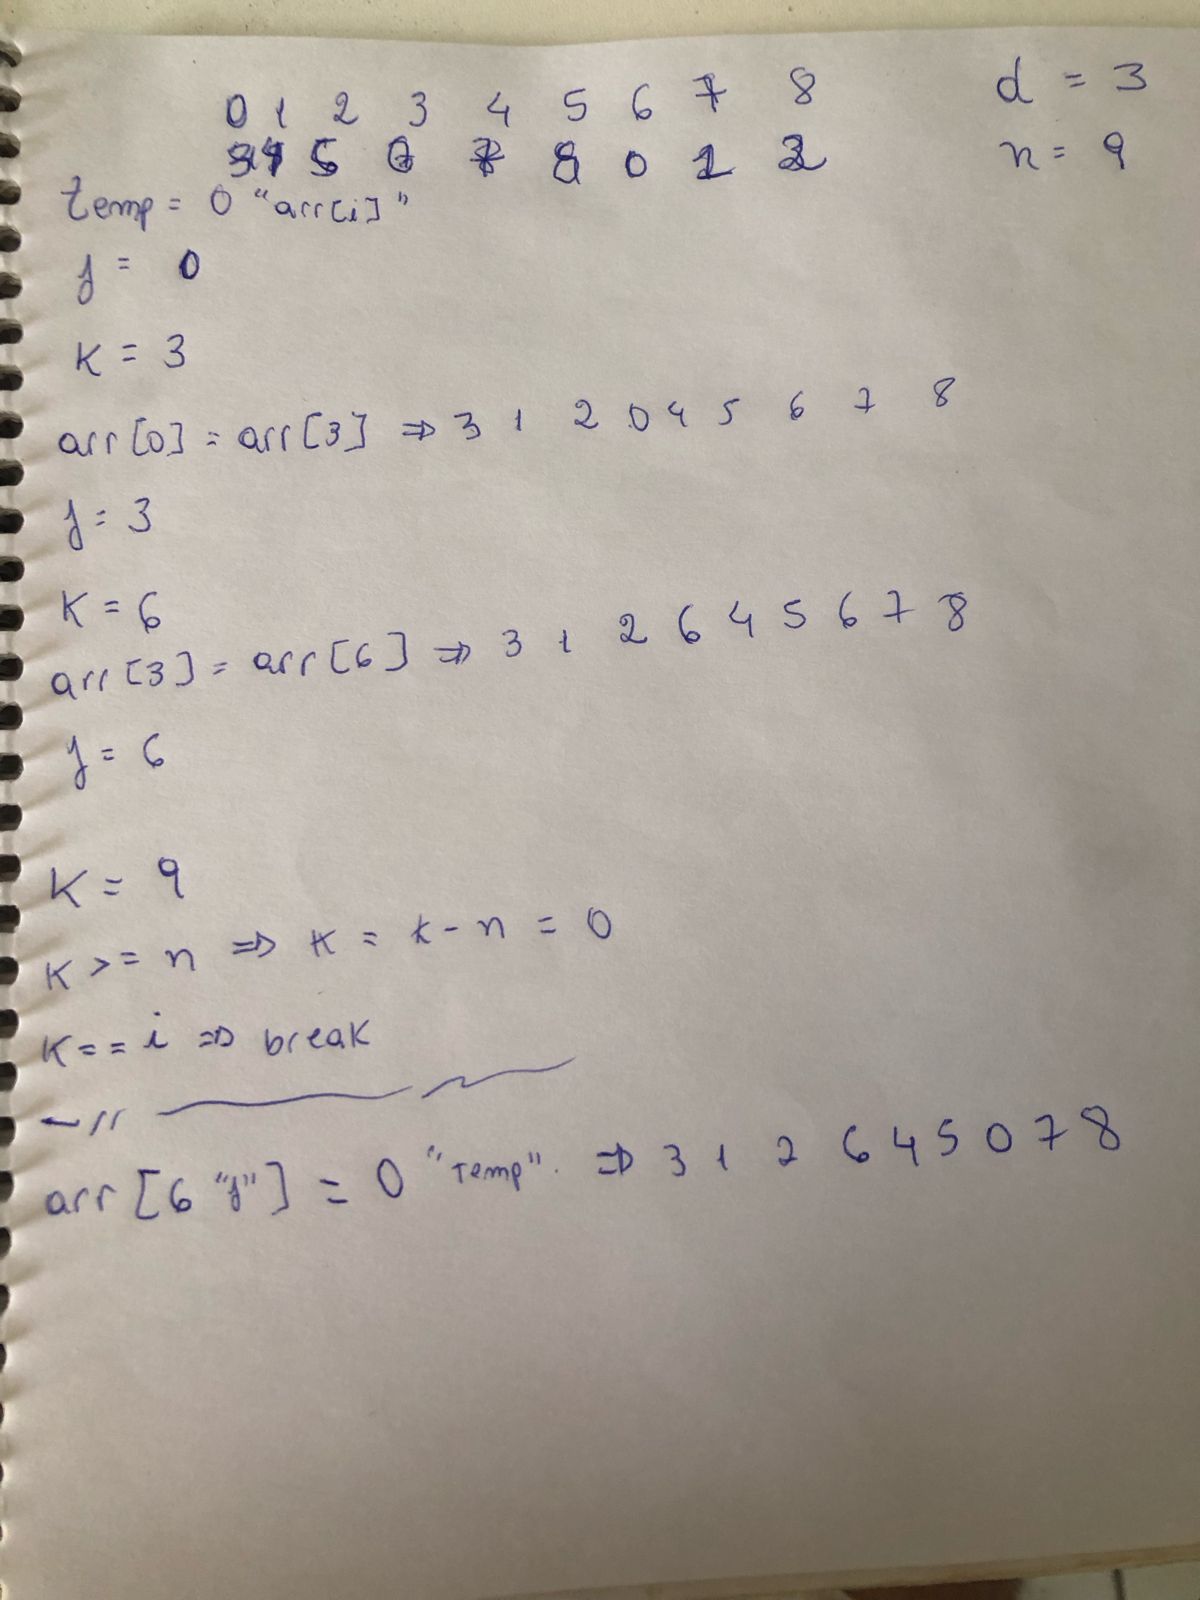 0 1 2 3 4 5 6 7 8 d = 3
5 0 2 n = 9
temp = 0 "arr[i]"
j = 0
K = 3
arr[0] = arr[3] ⇒ 3 1 2 0 4 5 6 7 8
j = 3
K = 6
arr[3] = arr[6] ⇒ 3 1 2 6 4 5 6 7 8
j = 6
K = 9
K >= n ⇒ K = k - n = 0
K == i ⇒ break
arr[6 "j"] = 0 "Temp". ⇒ 3 1 2 6 4 5 0 7 8